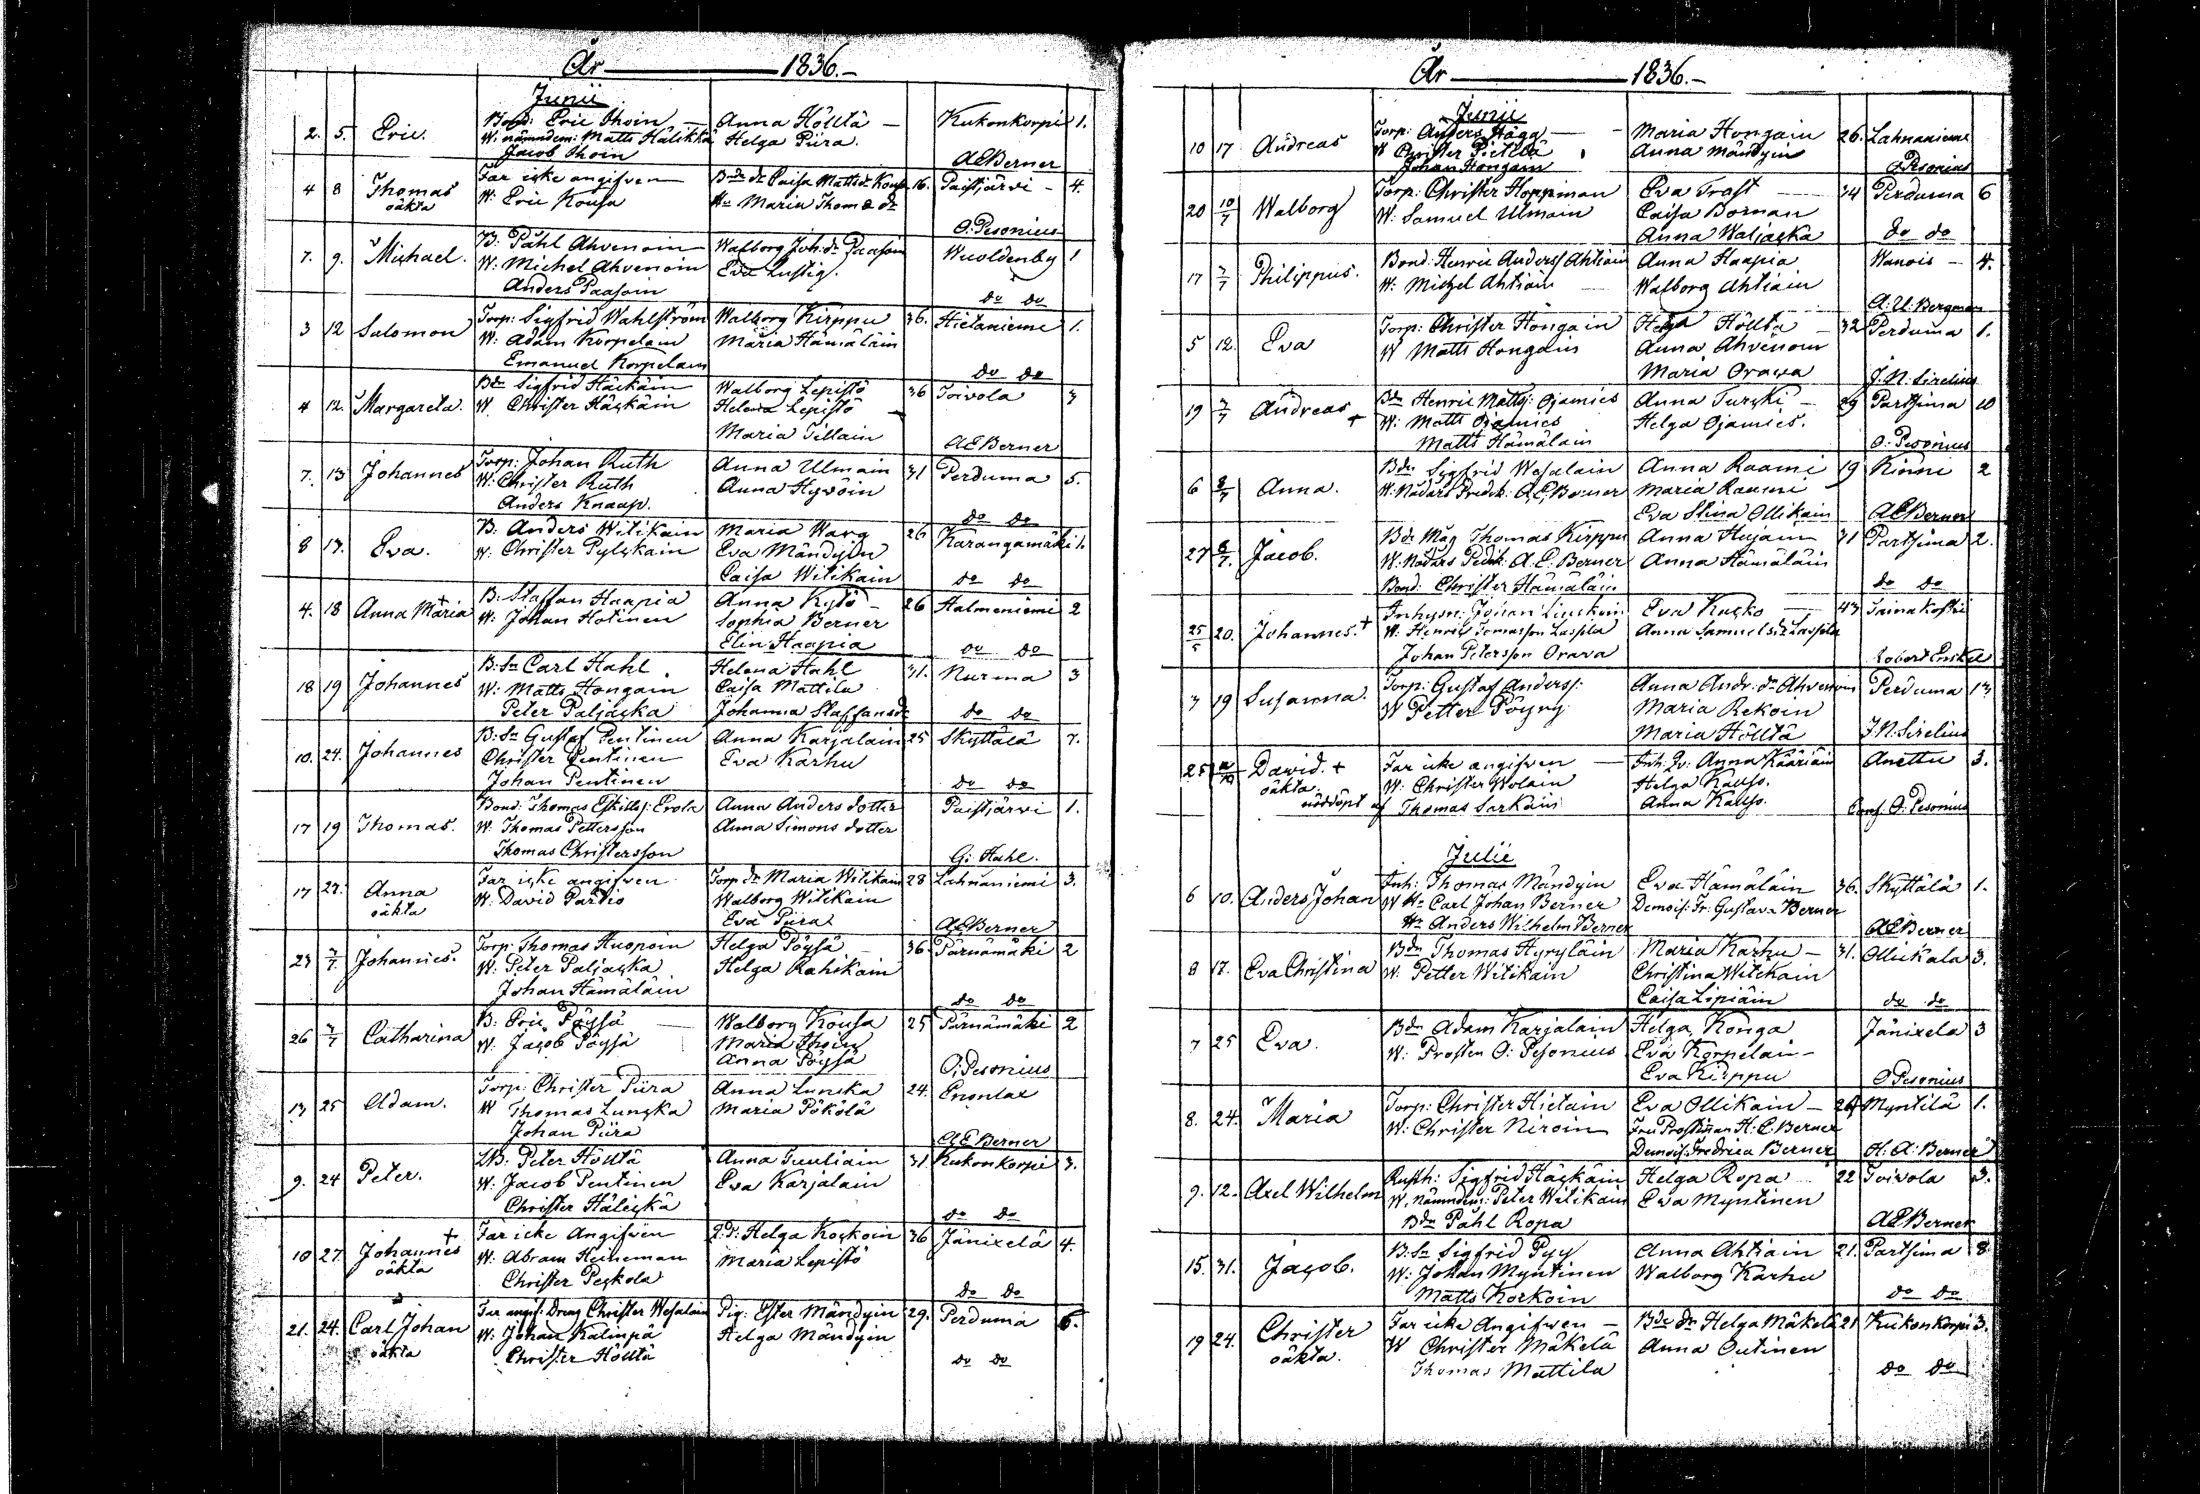 År 1836.
Junii
2. 5. Eric. Bond: Eric Ihoin Anna Höltta Kukonkorpi 1.
W. nämndem: Matts Hälikkä Helga Piira.
Jacob Ihoin AEBerner
4 8 Thomas Far icke angifven Bde dr Caisa Mattsdr Kousa 16. Paistjärvi 4.
oäkta W: Eric Kousa Maria Thomædr
O. Pesonius
7. 9. Michael. B: Påhl Ahvenoin Walborg Joh:dr Paasoin Wuoldenby 1
W: Michel Ahvenoin Eva Lustig.
Anders Paasoin do do
3 12 Salomon Torp: Sigfrid Wahlström Walborg Kirppu 36. Hietanieme 1.
W: Adam Korpelain Maria Hämäläin
Emanuel Korpelain do do
4 12. Margareta. Bdn Sigfrid Häskäin Walborg Lepistö 36 Toivola 3
W. Christer Häskäin Helena Lepistö
Maria Tillain AEBerner
7. 13 Johannes Torp: Johan Ruth Anna Ulmain 31 Perduma 5.
W: Christer Ruth Anna Hyvöin
Anders Knaap. do do
8 17. Eva. B. Anders Wilikain Maria Warg 26 Karangamäki 1.
W: Christer Pylskain Eva Mändyin
Caisa Wilikain do do
4. 18 Anna Maria + B: Staffan Haapia Anna Kylö 26 Halmeniemi 2
W: Johan Hotinen Sophia Berner
Elin Haapia do do
18 19 Johannes B:Sn Carl Hahl Helena Hahl 31. Nurma 3
W: Matts Hongain Caisa Mattila
Peter Paljaska Johanna Staffansdr do do
10. 24. Johannes B:Sn Gustaf Pentinen Anna Karjalain 25 Skyttälä 7.
Christer Pentinen Eva Karhu
Johan Pentinen do do
17 19 Thomas. Bond: Thomas Eskilss: Erola Anna Anders dotter Paistjärvi 1.
W. Thomas Pettersson Anna Simons dotter
Thomas Christersson G: Hahl.
17 27. Anna Far icke angifven Torp dr Maria Wilikain 28 Lahnaniemi 3.
oäkta W. David Partio Walborg Wilikain
Eva Piira AEBerner
23 3/7 Johannes. Torp: Thomas Huopoin Helga Pöysä 36. Pärnämäki 2
W. Peter Paljaska Helga Rahikain
Johan Hämäläin do do
26 3/7 Catharina B: Eric Pöysä Walborg Kousa 25 Pärnämäki 2
W. Jacob Pöysä Maria Ihoin
Anna Pöysä O: Pesonius
13 25 Adam. Torp: Christer Piira Anna Lunska 24. Enonlax
W Thomas Lunska Maria Pökölä
Johan Piira AEBerner
9. 24 Peter. LB: Peter Höltta Anna Tuuliain 31 Kukonkorpi 3.
W. Jacob Pentinen Eva Karjalain
Christer Häleikä do do
10 27. Johannes + Far icke Angifven Helga Koskoin 36 Jänixelä 4.
oäkta W: Abram Heineman Maria Lepistö
Christer Peskola do do
21. 24. Carl Johan Far angif: Dräng Christer Wesalain Pig: Ester Mändyin 29. Perduma 6.
oäkta W: Johan Kalinpä Helga Mändyin
Christer Höltta do do
År 1836.
Junii
10 17 Andreas Torp: Anders Häga Maria Hongain 26. Lahnanieme
W Christer Pietilä Anna Mändyin
Johan Hongain O Pesonius
20 10/7 Walborg Torp: Christer Hoppiman Eva Trast 34 Perduma 6
W. Samuel Ulmain Caisa Dornan
Anna Waljaska do do
17 3/7 Philippus. Bond: Henric Anderss Ahtiain Anna Haapia Wanois 4.
W: Michel Ahtiain Walborg Ahtiain
A: U: Bergman
5 12. Eva Torp: Christer Hongain Helga Höltta 32 Perduma 1.
W Matts Hongain Anna Ahvenoin
Maria Orava J. N: Sirelius
19 3/7 Andreas + Bdn Henric Mattss: Ojamies Anna Turski 29 Partsima 10
W: Matts Ojamies Helga Ojamies.
Matts Hämäläin O: Pesonius
6 3/7 Anna. Bdn Sigfrid Wesalain Anna Raami 19 Kinni 2
W: Nådårs Predik: A.E. Berner Maria Raami
Eva Stina Ollikain AEBerner
27 8/7. Jacob. Bde Måg Thomas Kirppu Anna Hujain 31 Partsima 2.
W: Nådårs Predik: A. E. Berner Anna Hämäläin
Bond: Christer Hämäläin do do
25/5 20. Johannes. + Inhysn: Johan Linskoin Eva Kusko 43 Tainakoski
W. Henric Tomasson Laspila Anna Samuels dr Laspila
Johan Petersson Orava Robert Enskel
3 19 Susanna. Torp: Gustaf Anderss: Anna Andr: dr Ahvenoin Perduma 13
W Petter Pöyry Maria Rekoin
Maria Höltta J. N: Sirelius
25 David. + Far icke angifven Inh. Qv: Anna Kääriäin Anettu 3.
oäkta W: Christer Wolain Helga Kauss.
nöddöpt af Thomas Sarkain Anna Kauss. O: Pesonius
Julii
6 10. Anders Johan Inh: Thomas Mändyin Eva Hämäläin 36. Skyttälä 1.
W Hr Carl Johan Berner Demois: Fr: Gustava Berner
Hr Anders Wilhelm Berner AEBerner
8 17. Eva Christina Bdn Thomas Hyryläin Maria Karhu 31. Ollikala 3.
W. Petter Wilikain Christina Wilikain
Caisa Lipiäin do do
7 25 Eva. Bdn Adam Karjalain Helga Konga Jänixela 3
W: Prosten O: Pesonius Eva Korpelain
Eva Kirppu O Pesonius
8. 24. Maria Torp: Christer Hietain Eva Ollikain 26 Myntilä 1.
W: Christer Niroin Fru Prostinan H: C. Berner
Demois: Fredrica Berner H: A: Berner
9. 12. Axel Wilhelm Rusth: Sigfrid Häskäin Helga Ropa 22 Toivola 3.
W. nämndem: Peter Wilikain Eva Myntinen
Bdn Påhl Ropa AEBerner
15. 31. Jacob. B:Sn Sigfrid Pyy Anna Ahtiain 21. Partsima 8.
W: Johan Myntinen Walborg Karhu
Matts Korkoin do do
19 24. Christer Far icke Angifven Bde dr Helga Mäkelä 21 Kukonkorpi 3.
oäkta. W Christer Mäkelä Anna Outinen
Thomas Mattila do do